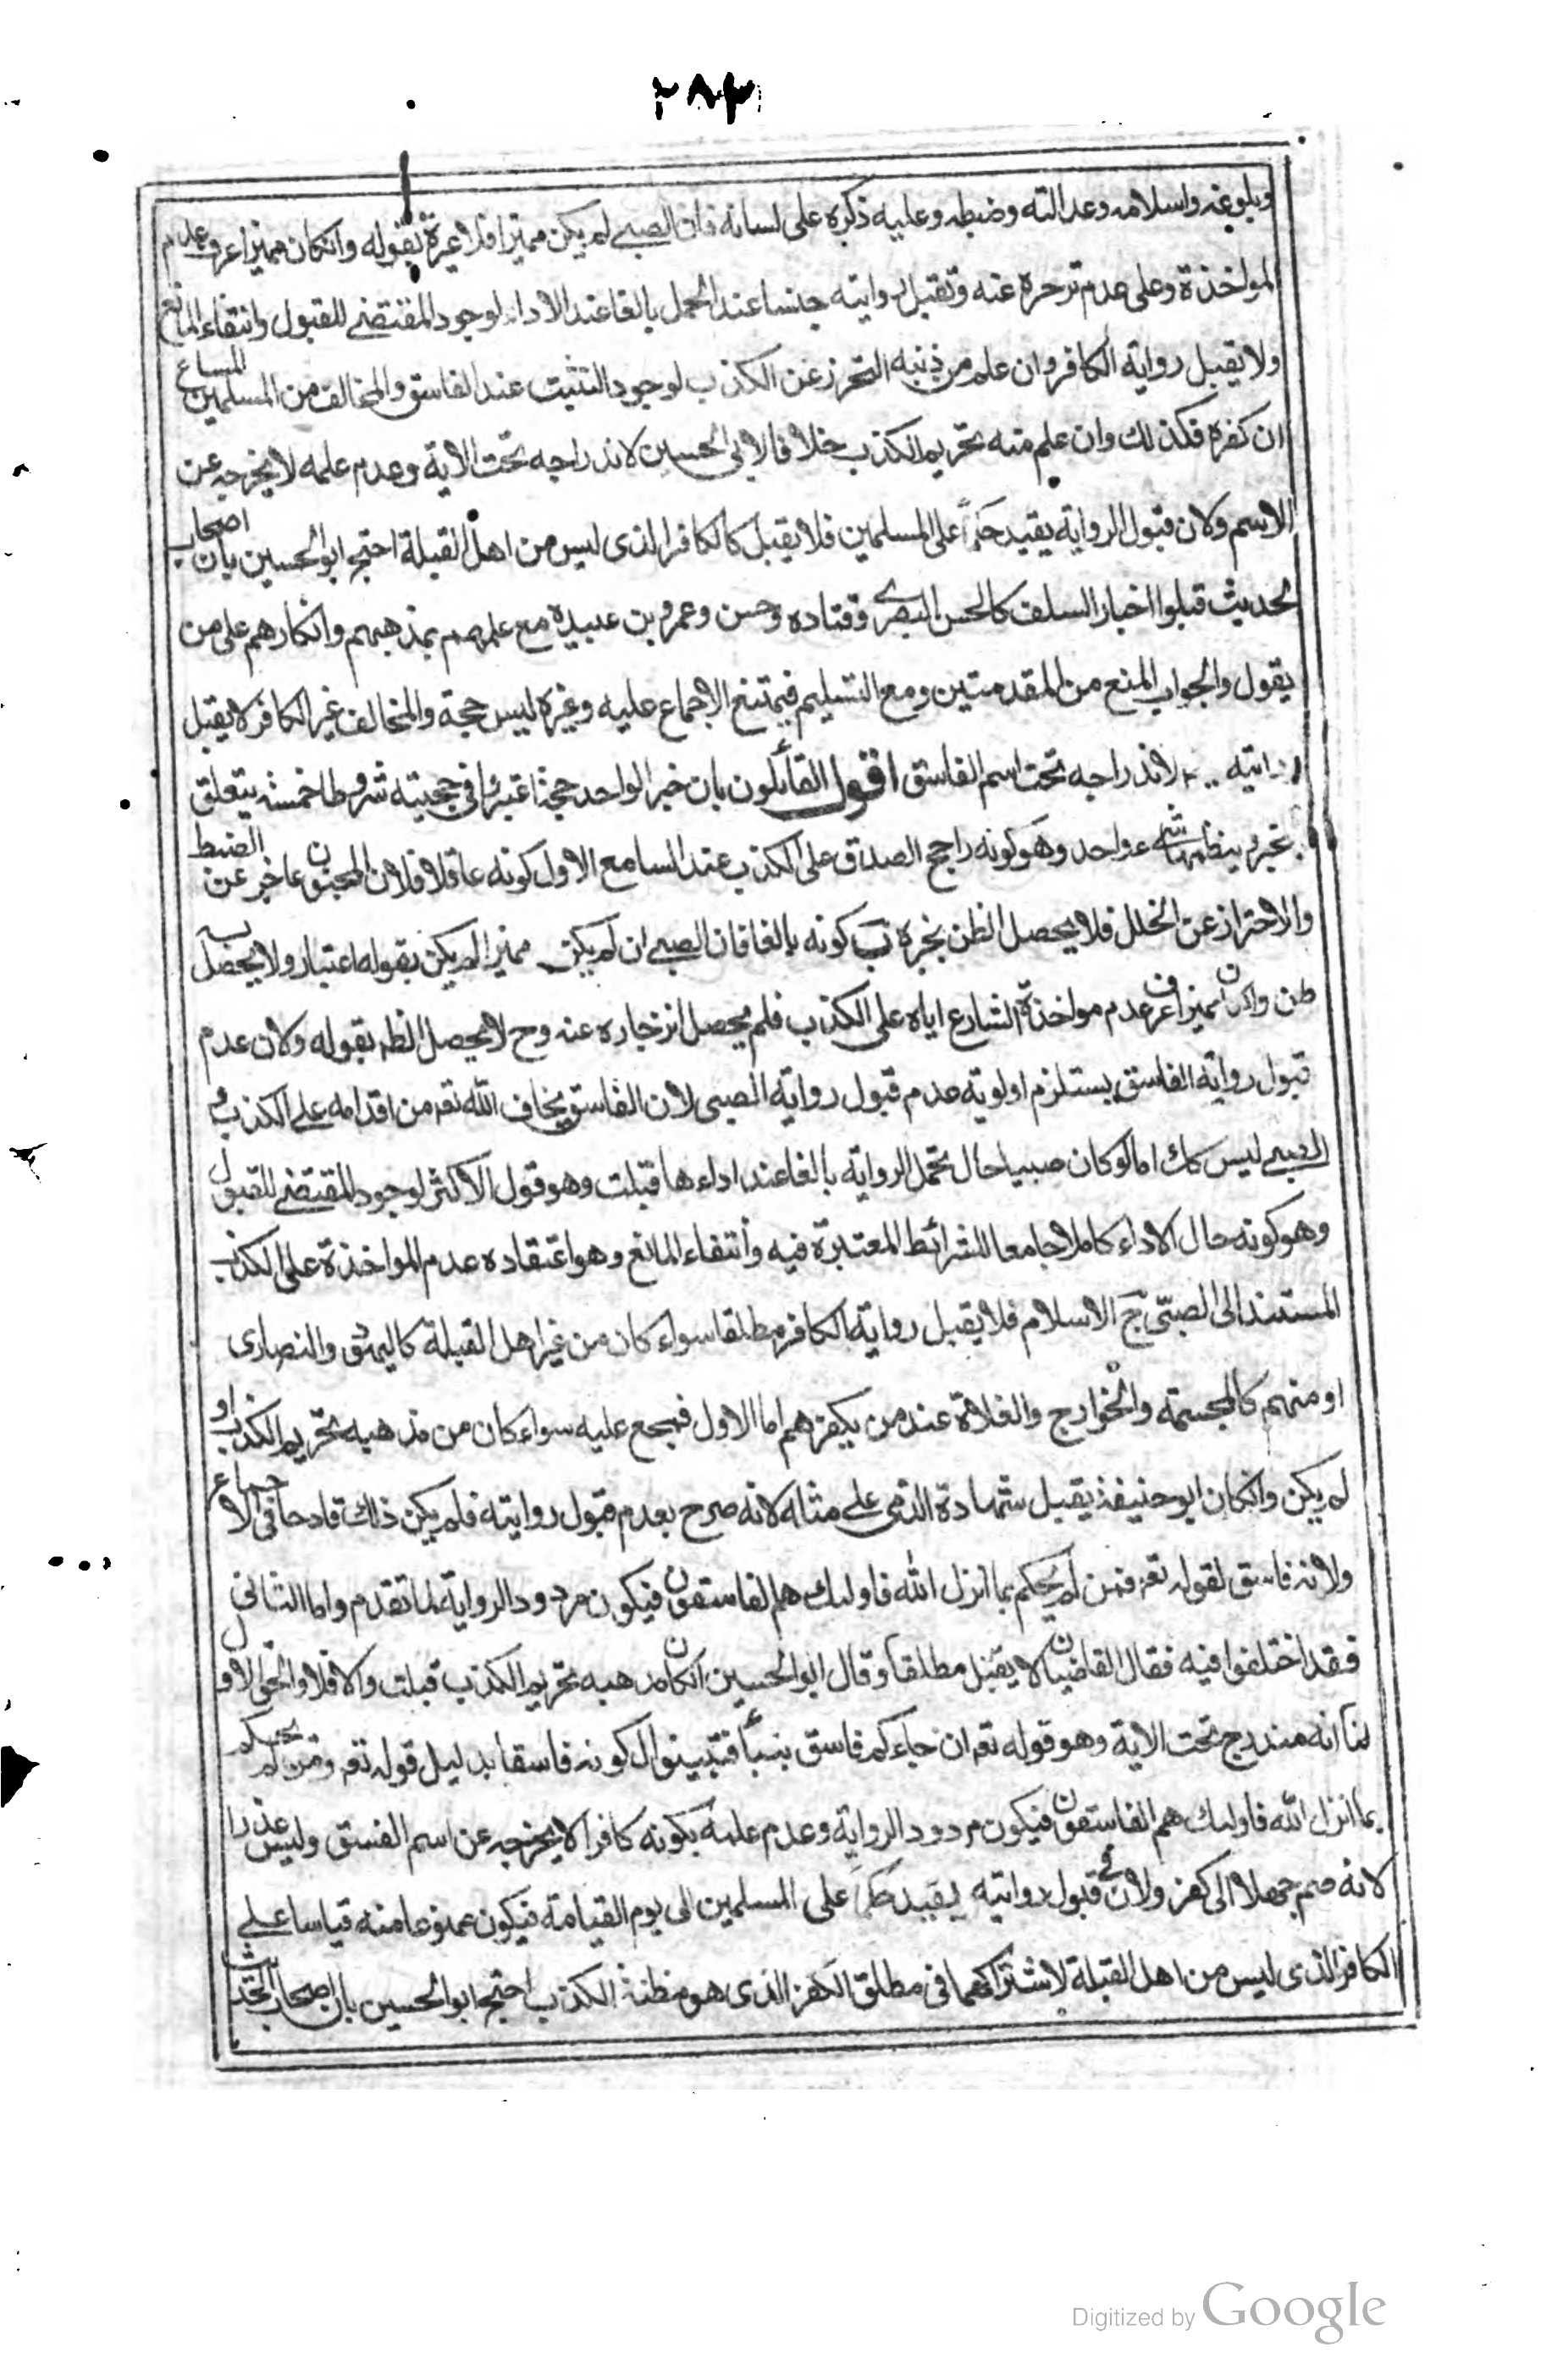 ٢٨٣
وبلوغه واسلامه وعدالته وضبطه وعليه ذكره على لسانه فان الصبي لم يكن مميزا فلا عبرة بقوله وانكان مميزا عرف عدم
المواخذة وعلى عدم تزحره عنه وتقبل روايته جنسا عند الحمل بالغا عند الاداء لوجود المقتضي للقبول وانتفاء المانع
ولا يقبل رواية الكافر وان علم من ذنبه التحرز عن الكذب لوجود التثبت عند الفاسق والمخالف من المسلمين
ان كفره فكذلك وان علم منه تحريم الكذب خلافا لابي الحسين لاندراجه تحت الاية وعدم علمه لا يخرجه عن
الاسم ولان قبول الرواية يقيد حكما على المسلمين فلا يقبل كالكافر الذى ليس من اهل القبلة احتج ابو الحسين بان اصحاب
الحديث قبلوا اخبار السلف كالحسن البصرى وقتاده وحسن وعمرو بن عبيدة مع علمهم بمذهبهم وانكارهم على من
يقول والجواب المنع من المقدمتين ومع التسليم فيمتنع الاجماع عليه وغيره ليس حجة والمخالف غير الكافر لا يقبل
روايته لاندراجه تحت اسم الفاسق اقول القائلون بان خبر الواحد حجة اعتبروا في حجيته شروطا خمسة يتعلق
بخبره ينظمها شىء واحد وهو كونه راجح الصدق على الكذب عند السامع الاول كونه عاقلا فلان المجنون عاجز عن الضبط
والاحتراز عن الخلل فلا يحصل الظن بخبره ب كونه بالغا فان الصبي ان لم يكن مميزا لم يكن بقوله اعتبار ولا يحصل به
ظن وان كان مميزا عرف عدم مواخذة الشارع اياه على الكذب فلم يحصل انزجاره عنه وح لا يحصل الظن بقوله ولان عدم
قبول رواية الفاسق يستلزم اولوية عدم قبول رواية الصبى لان الفاسق يخاف الله تعه من اقدامه على الكذب و
الصبي ليس كك اما لو كان صبيا حال تحمل الرواية بالغا عند اداءها قبلت وهو قول الاكثر لوجود المقتضي للقبول
وهو كونه حال الاداء كاملا جامعا للشرائط المعتبرة فيه وانتفاء المانع وهو اعتقاده عدم المواخذة على الكذب
المستند الى الصبى ج الاسلام فلا يقبل رواية الكافر مطلقا سواء كان من غير اهل القبلة كاليهود والنصارى
او منهم كالمجسمة والخوارج والغلاة عند من يكفرهم اما الاول فمجمع عليه سواء كان من مذهبه تحريم الكذب او
لم يكن وانكان ابو حنيفة يقبل شهادة الذمى على مثله لانه صرح بعدم قبول روايته فلم يكن ذلك قادحا فى الاجماع
ولانه فاسق لقوله تعه فمن لم يحكم بما انزل الله فاولئك هم الفاسقون فيكون مردود الرواية لما تقدم واما الثانى
فقد اختلفوا فيه فقال القاضيان لا يقبل مطلقا وقال ابو الحسين انكان مذهبه تحريم الكذب قبلت والا فلا والحق الاول
لنا انه مندرج تحت الاية وهو قوله تعه ان جاءكم فاسق بنبأ فتبينوا لكونه فاسقا بدليل قوله تعه ومن لم يحكم
بما انزل الله فاولئك هم الفاسقون فيكون مردود الرواية وعدم علمه بكونه كافرا لا يخرجه عن اسم الفسق وليس عذرا
لانه ضم جهلا الى كفر ولان فى قبول روايته يقيد حكما على المسلمين الى يوم القيامة فيكون ممنوعا منه قياسا على
الكافر الذى ليس من اهل القبلة لاشتراكهما فى مطلق الكفر الذى هو مظنة الكذب احتج ابو الحسين بان اصحاب الحديث
Digitized by Google